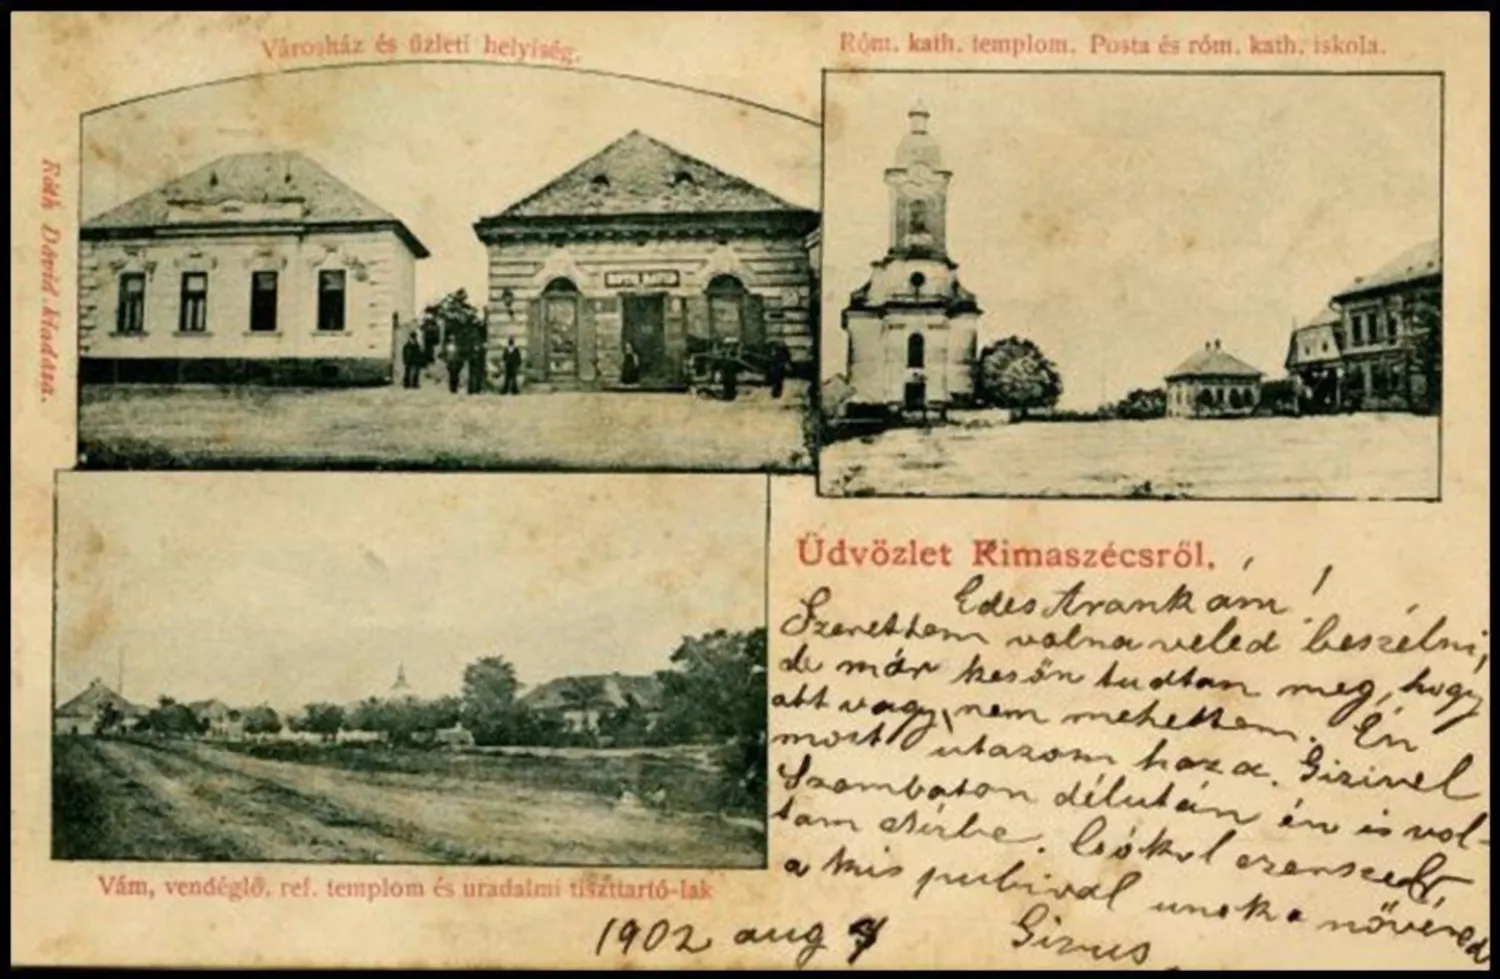 Városház és üzleti helyiség.
Róm. kath. templom. Posta és róm. kath. iskola.
Róth Dávid kiadása.
Üdvözlet Rimaszécsről.
Edes Arankám!
Szerettem volna veled beszélni,
de már későn tudtam meg, hogy
ott vagy, nem mehettem. Én
most utazom haza. Gizivel
Szombaton délután én is vol-
tam. Csókol ezerszer
a kis pubival unoka nővéred
Gizus
1902 aug
Vám, vendéglő, ref. templom és uradalmi tiszttartó-lak